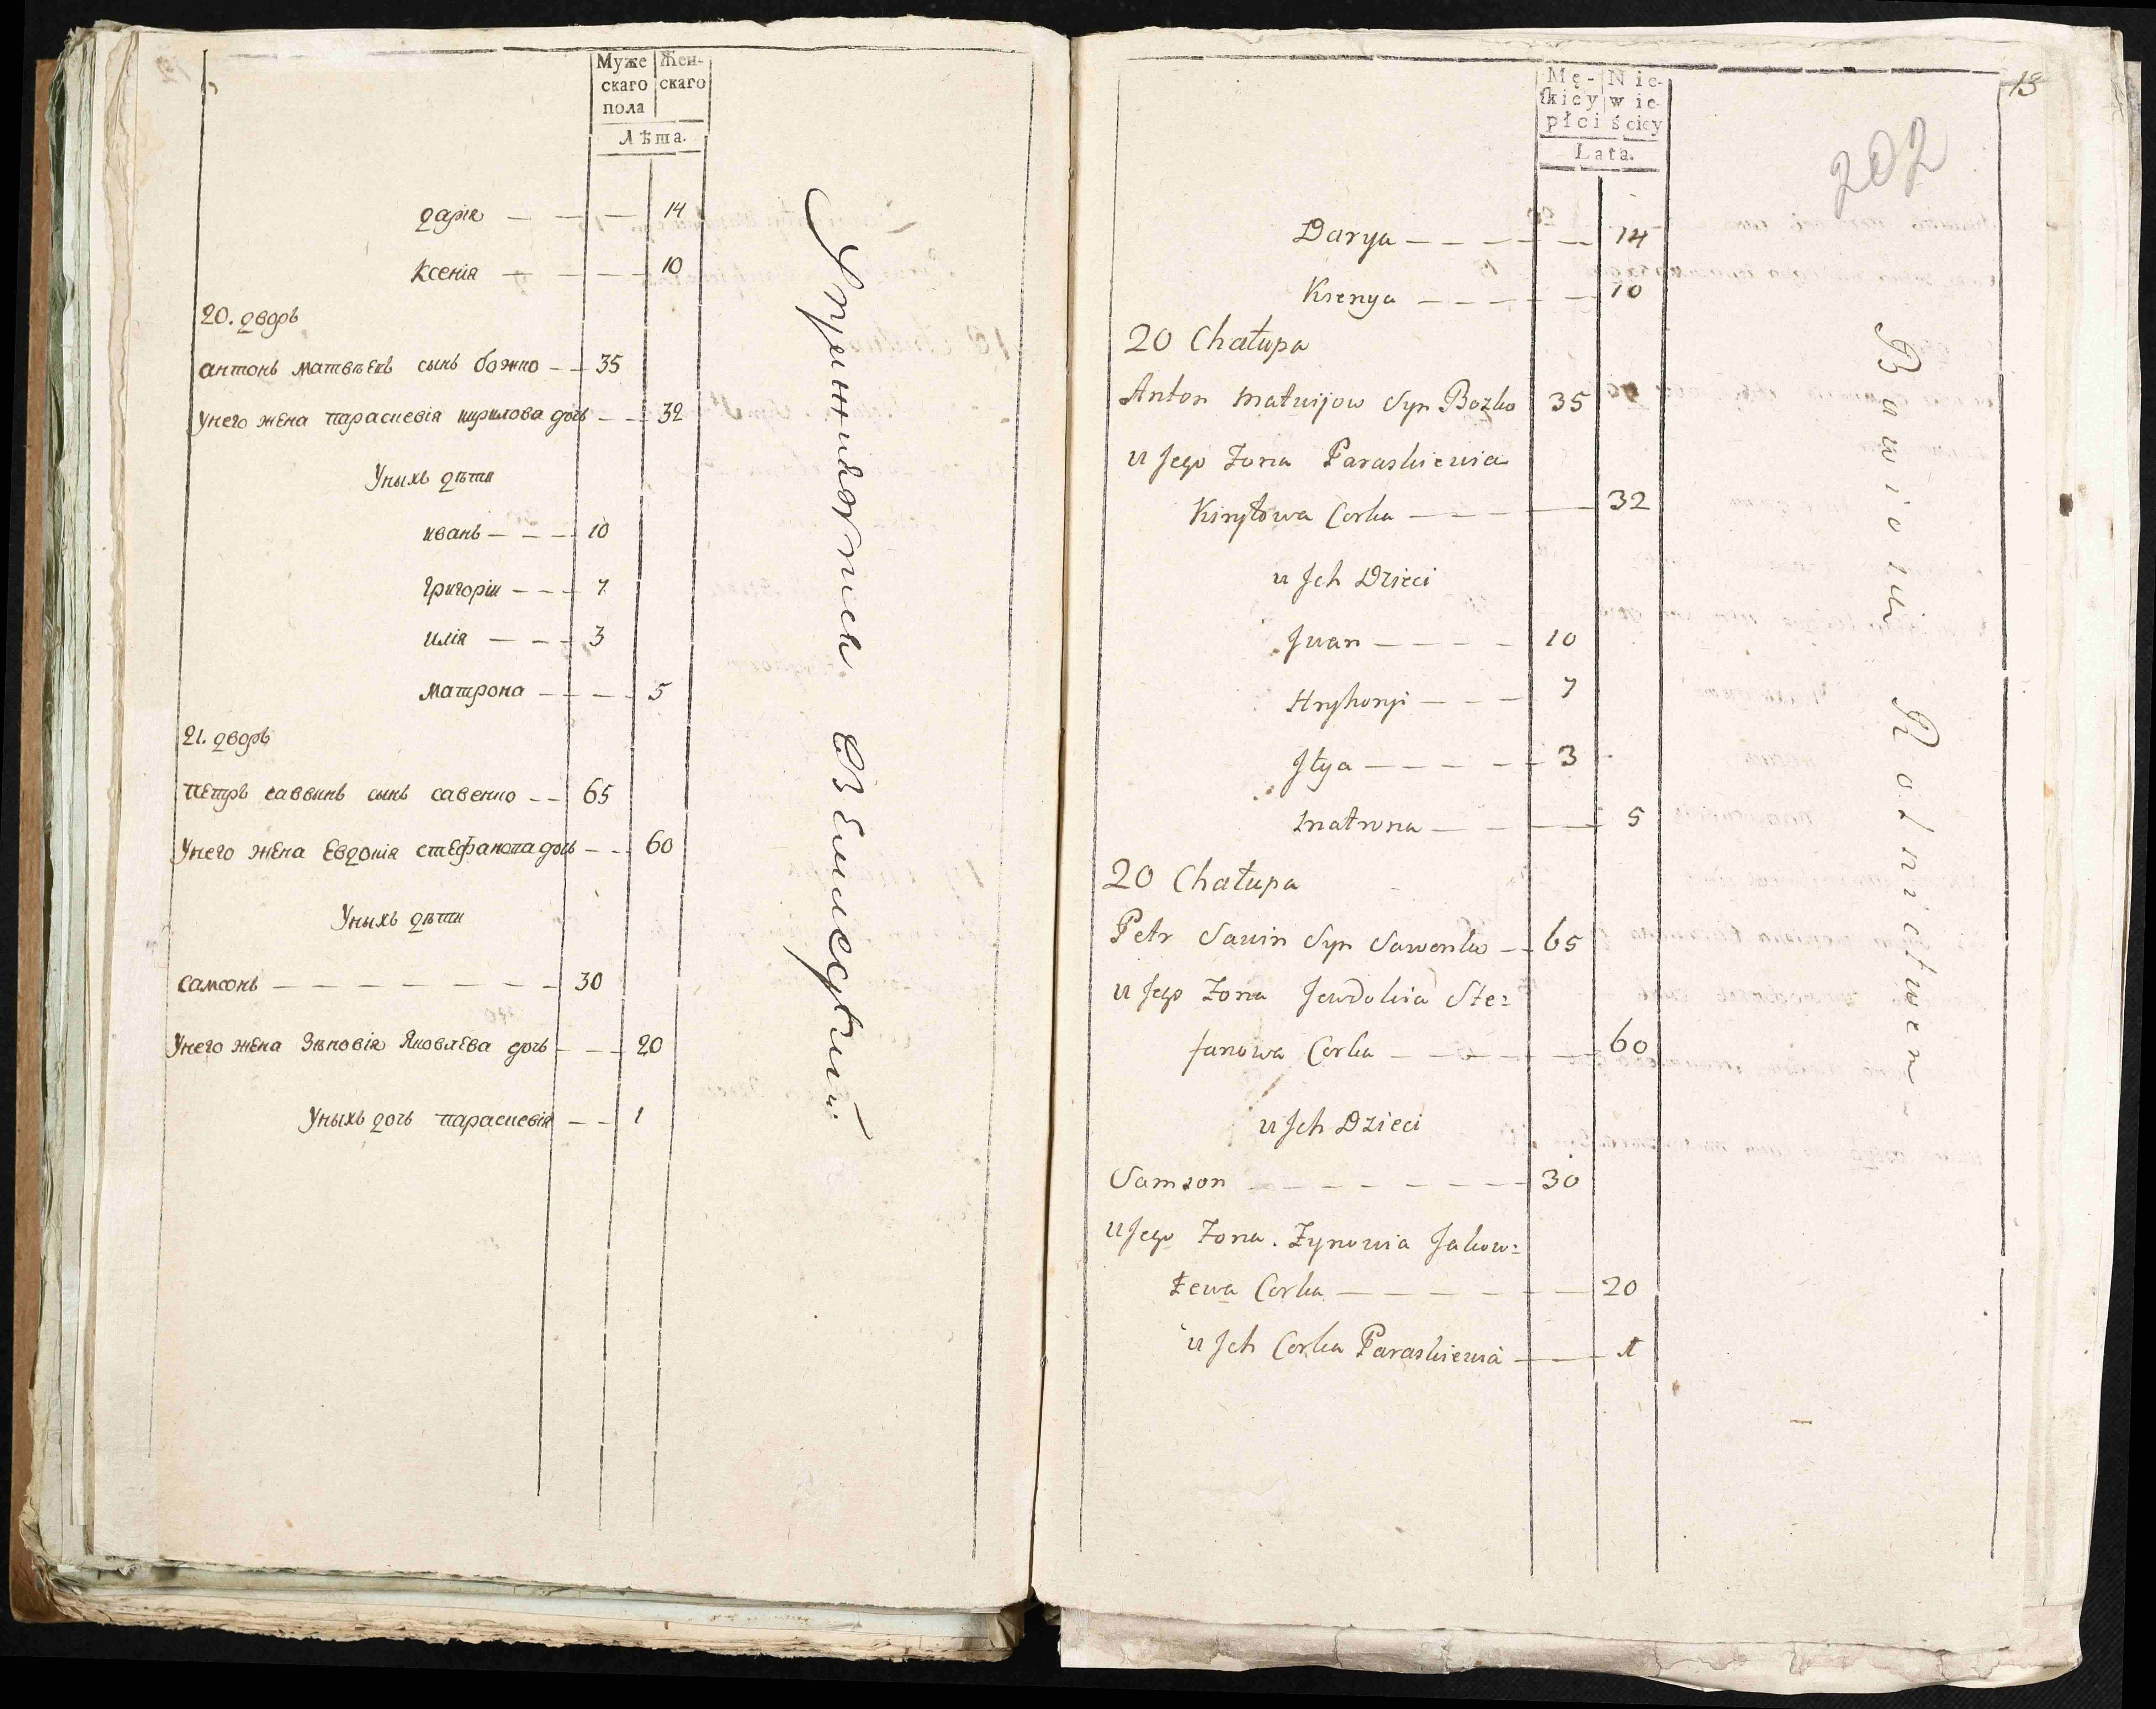 Муже Жен-
скаго скаго
пола
Лѣта.
дарія — — — 14
ксенія — — — 10
20. дворъ
антонъ матвѣевъ сынъ божко — — 35
Унего жена параскевія кирилова дочь — — 32
Уныхъ дѣти
иванъ — — — 10
григоріи — — — 7
илія — — — 3
матрона — — — 5
21. дворъ
петръ саввинъ сынъ савенко — — 65
Унего жена Евдокія стефанова дочь — — 60
Уныхъ дѣти
самсонъ — — — — — — 30
Унего жена Зѣновія Яковлева дочь — — — 20
Уныхъ дочь параскевія — — 1
Упражняются вземледѣлии.
18
202
Mę- Nie-
ſkiey wie-
płci ściey
Lata.
Darya — — — — — 14
Ksenya — — — — 10
20 Chałupa
Anton Matwijow Syn Bozko 35
u Jego Zona Paraskiewia
Kiryłowa Corka — — — — 32
u Jch Dzieci
Jwan — — — — 10
Hryhoryi — — — 7
Jłya — — — — 3
Matrona — — — 5
20 Chałupa
Petr Sawin Syn Sawenko — — 65
u Jego Zona Jewdokia Ste=
fanowa Corka — — — — 60
u Jch Dzieci
Samson — — — — — — 30
u Jego Zona. Zynowia Jakow=
łewa Corka — — — — — 20
u Jch Corka Paraskiewia — — 1
Bawiona Rolnictwem